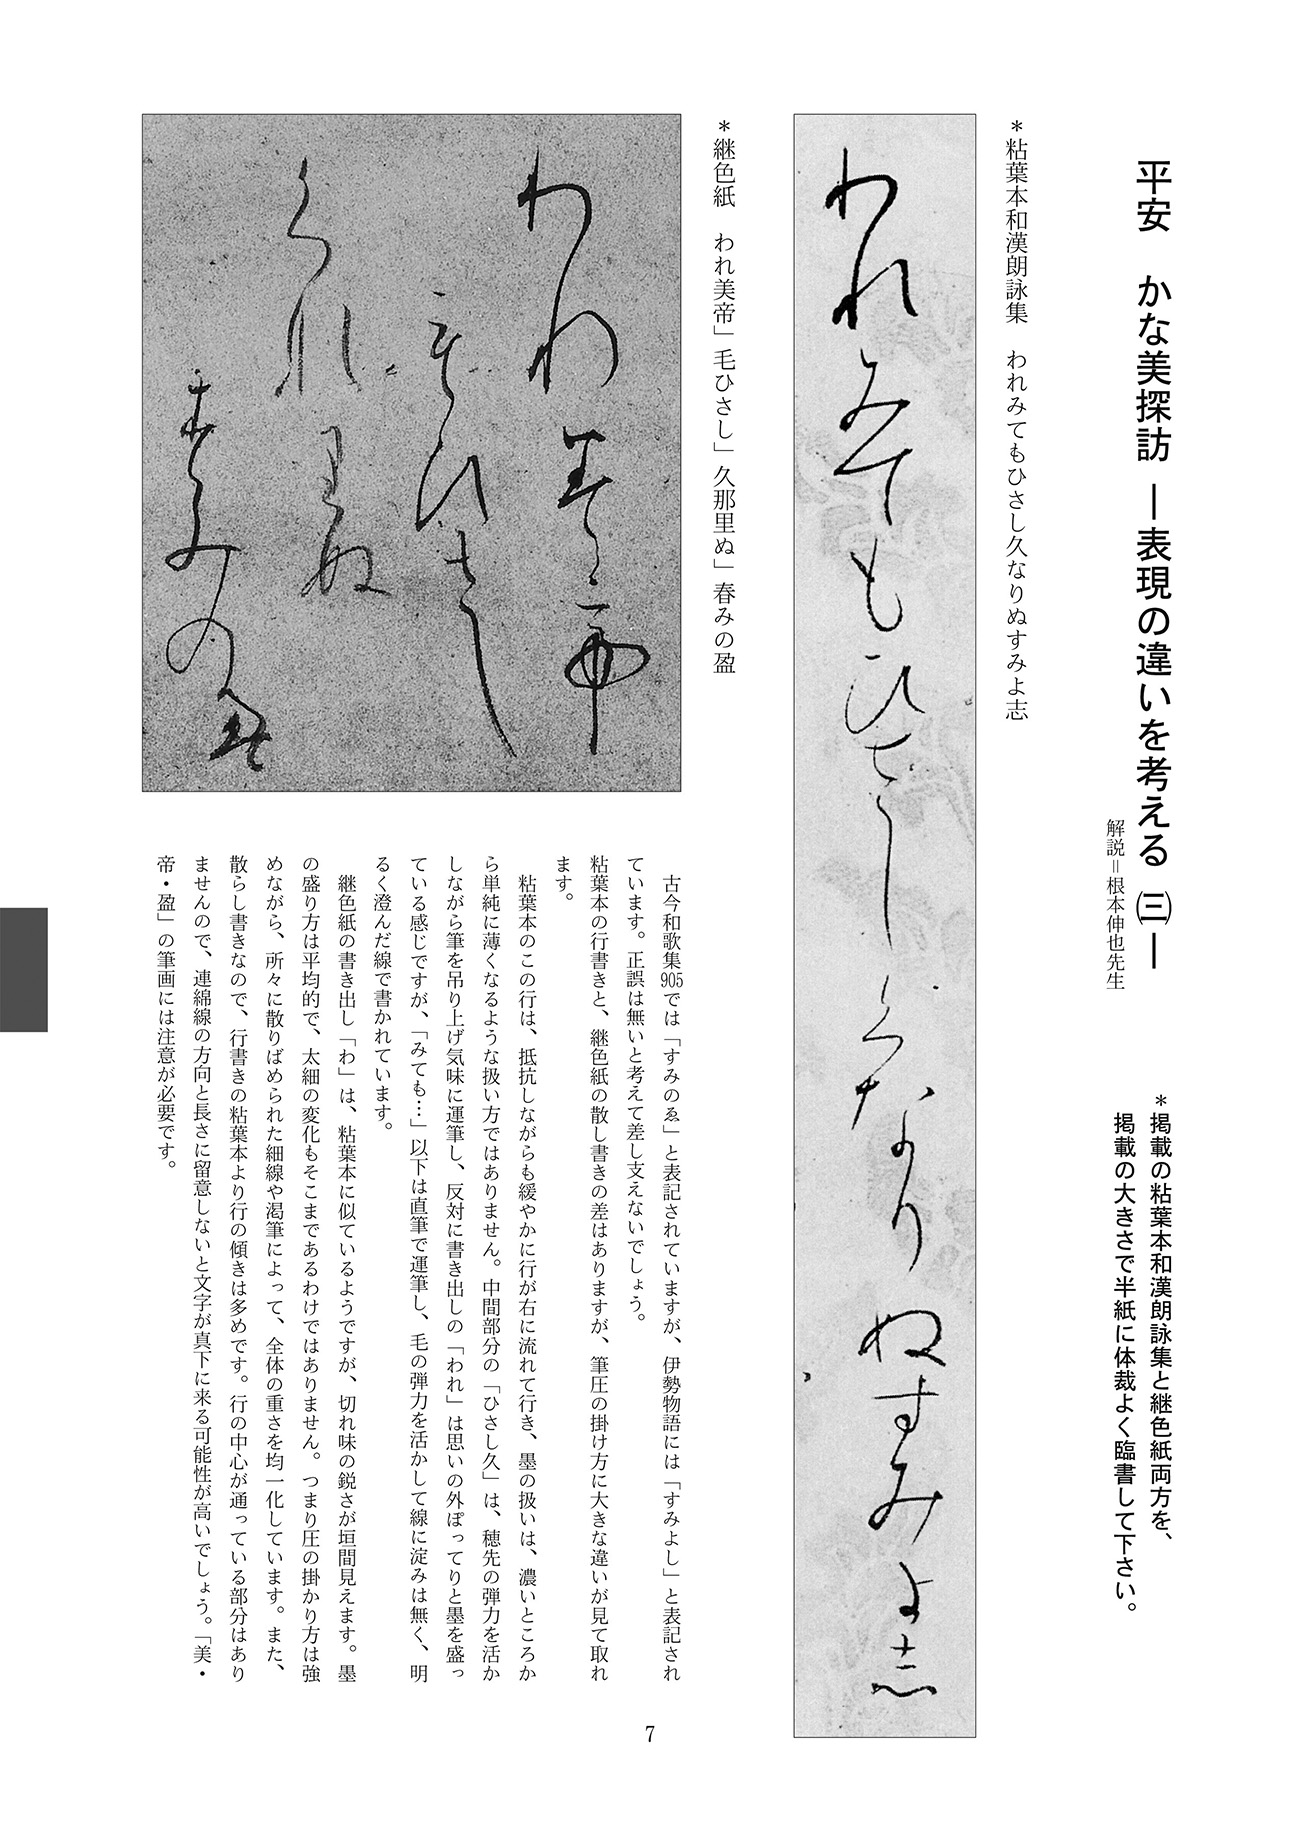 平安　かな美探訪 ―表現の違いを考える ㈢―
解説＝根本伸也先生
＊掲載の粘葉本和漢朗詠集と継色紙両方を、
掲載の大きさで半紙に体裁よく臨書して下さい。
＊粘葉本和漢朗詠集　われみてもひさし久なりぬすみよ志
われみてもひさし久なりぬすみよ志
＊継色紙　われ美帝」毛ひさし」久那里ぬ」春みの盈
われ美帝
毛ひさし
久那里ぬ
春みの盈
古今和歌集905では「すみのゑ」と表記されていますが、伊勢物語には「すみよし」と表記され
ています。正誤は無いと考えて差し支えないでしょう。
粘葉本の行書きと、継色紙の散し書きの差はありますが、筆圧の掛け方に大きな違いが見て取れ
ます。
粘葉本のこの行は、抵抗しながらも緩やかに行が右に流れて行き、墨の扱いは、濃いところか
ら単純に薄くなるような扱い方ではありません。中間部分の「ひさし久」は、穂先の弾力を活か
しながら筆を吊り上げ気味に運筆し、反対に書き出しの「われ」は思いの外ぽってりと墨を盛っ
ている感じですが、「みても…」以下は直筆で運筆し、毛の弾力を活かして線に淀みは無く、明
るく澄んだ線で書かれています。
継色紙の書き出し「わ」は、粘葉本に似ているようですが、切れ味の鋭さが垣間見えます。墨
の盛り方は平均的で、太細の変化もそこまであるわけではありません。つまり圧の掛かり方は強
めながら、所々に散りばめられた細線や渇筆によって、全体の重さを均一化しています。また、
散らし書きなので、行書きの粘葉本より行の傾きは多めです。行の中心が通っている部分はあり
ませんので、連綿線の方向と長さに留意しないと文字が真下に来る可能性が高いでしょう。「美・
帝・盈」の筆画には注意が必要です。
7